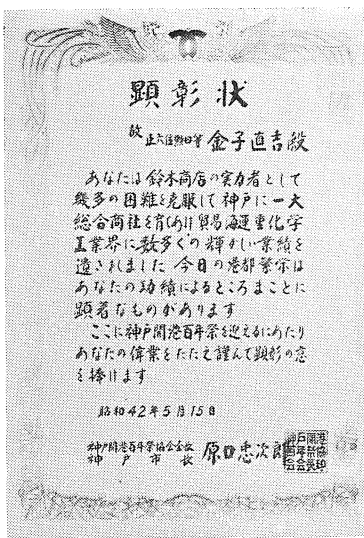 顕彰状
故 正六位勲四等 金子直吉殿
あなたは鈴木商店の実力者として
幾多の困難を克服して神戸に一大
総合商社を育てあげ貿易海運重化学
工業界に数多くの輝かしい業績を
遺されました 今日の港都繁栄は
あなたの功績によるところまことに
顕著なものがあります
ここに神戸開港百年祭を迎えるにあたり
あなたの偉業をたたえ謹んで顕彰の意
を捧げます
昭和42年5月15日
神戸開港百年祭協会会長
神戸市長 原口忠次郎